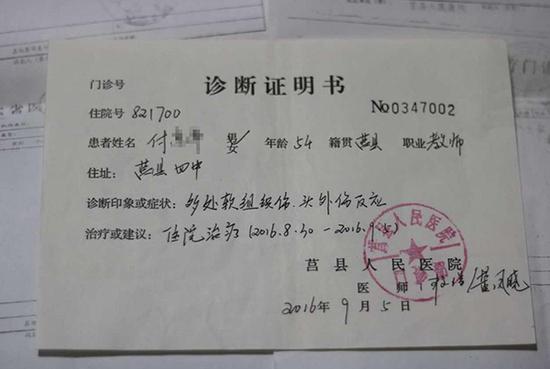 诊断证明书
门诊号
住院号 821700 No 0347002
患者姓名 付 男/女 年龄 54 籍贯 莒县 职业 教师
住址: 莒县四中
诊断印象或症状: 多处软组织伤、头外伤反应
治疗或建议: 住院治疗(2016.8.30-2016.9.5)
莒县人民医院
莒县人民医院
医师
2016年9月5日